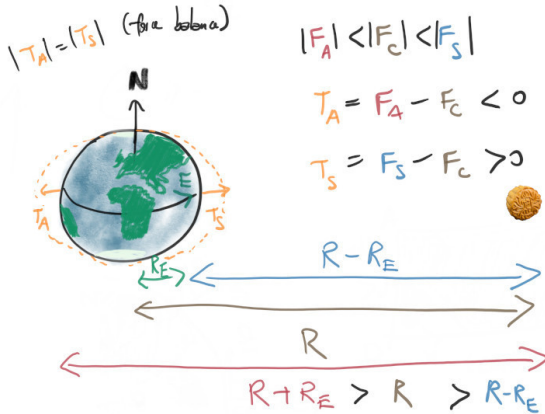 |T_A| = |T_S| (force balance)
|F_A| < |F_C| < |F_S|
T_A = F_A - F_C < 0
T_S = F_S - F_C > 0
N
E
T_A
T_S
R_E
R - R_E
R
R + R_E > R > R - R_E